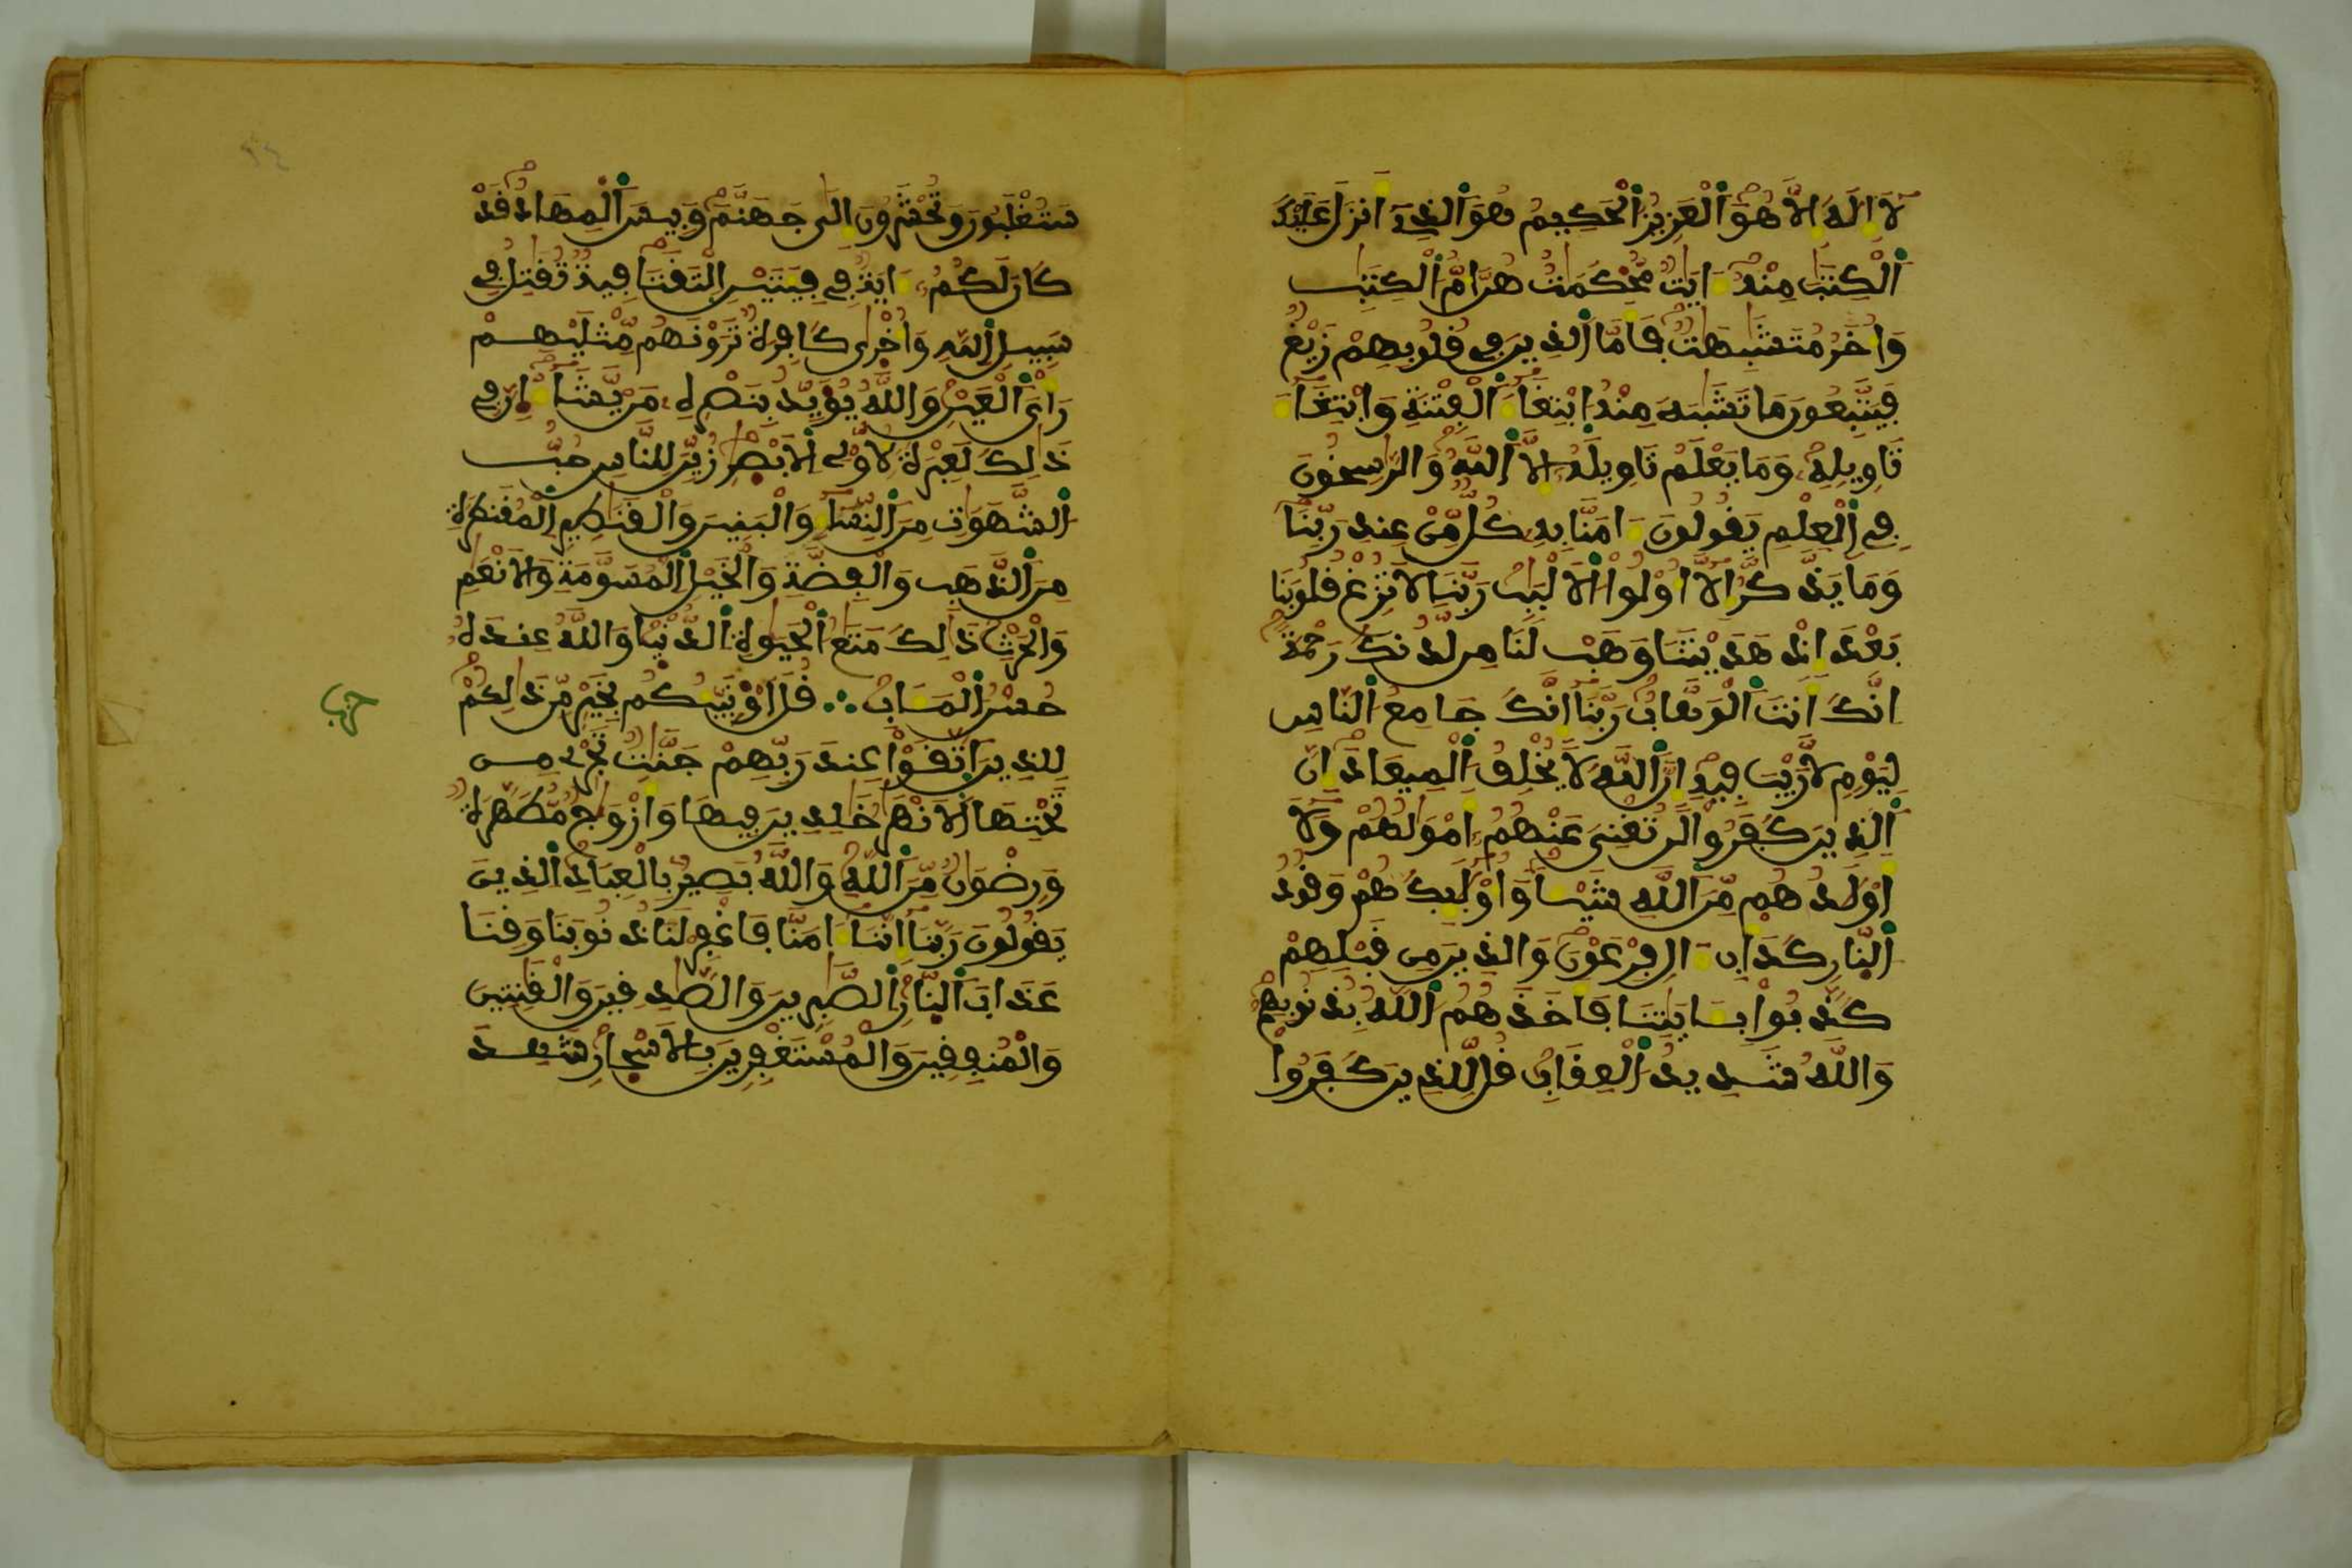 لَا إِلَهَ إِلَّا هُوَ اَ۬لْعَزِيزُ اُ۬لْحَكِيمُ هُوَ اَ۬لذِے أَنزَلَ عَلَيْكَ
اَ۬لْكِتَٰبَ مِنْهُ ءَايَٰتٞ مُّحْكَمَٰتٌ هُنَّ أُمُّ اُ۬لْكِتَٰبِ
وَأُخَرُ مُتَشَٰبِهَٰتٞ فَأَمَّا اَ۬لذِينَ فِے قُلُوبِهِمْ زَيْغٞ
فَيَتَّبِعُونَ مَا تَشَٰبَهَ مِنْهُ اُ۪بْتِغَآءَ اَ۬لْفِتْنَةِ وَابْتِغَآءَ
تَاوِيلِهِۦ وَمَا يَعْلَمُ تَاوِيلَهُۥٓ إِلَّا اَ۬للَّهُ وَالرَّٰسِخُونَ
فِے اِ۬لْعِلْمِ يَقُولُونَ ءَامَنَّا بِهِۦ كُلّٞ مِّنْ عِندِ رَبِّنَا
وَمَا يَذَّكَّرُ إِلَّآ أُوْلُواْ اُ۬لَالْبَٰبِ رَبَّنَا لَا تُزِغْ قُلُوبَنَا
بَعْدَ إِذْ هَدَيْتَنَا وَهَبْ لَنَا مِن لَّدُنكَ رَحْمَةً
اِنَّكَ أَنتَ اَ۬لْوَهَّابُ رَبَّنَآ إِنَّكَ جَامِعُ اُ۬لنَّاسِ
لِيَوْمٖ لَّا رَيْبَ فِيهِ إِنَّ اَ۬للَّهَ لَا يُخْلِفُ اُ۬لْمِيعَادَ إِنَّ
اَ۬لذِينَ كَفَرُواْ لَن تُغْنِيَ عَنْهُمُۥٓ أَمْوَٰلُهُمْ وَلَآ
أَوْلَٰدُهُم مِّنَ اَ۬للَّهِ شَيْـٔاٗ وَأُوْلَٰٓئِكَ هُمْ وَقُودُ
اُ۬لنَّارِ كَدَأْبِ ءَالِ فِرْعَوْنَ وَالذِينَ مِن قَبْلِهِمْ
كَذَّبُواْ بِـَٔايَٰتِنَا فَأَخَذَهُمُ اُ۬للَّهُ بِذُنُوبِهِمْ
وَاللَّهُ شَدِيدُ اُ۬لْعِقَابِ قُل لِّلذِينَ كَفَرُواْ
سَتُغْلَبُونَ وَتُحْشَرُونَ إِلَىٰ جَهَنَّمَ وَبِيسَ اَ۬لْمِهَادُ قَدْ
كَانَ لَكُمُۥٓ ءَايَةٞ فِے فِئَتَيْنِ اِ۪لْتَقَتَا فِئَةٞ تُقَٰتِلُ فِے
سَبِيلِ اِ۬للَّهِ وَأُخْرَىٰ كَافِرَةٞ تَرَوْنَهُم مِّثْلَيْهِمْ
رَأْيَ اَ۬لْعَيْنِ وَاللَّهُ يُؤَيِّدُ بِنَصْرِهِۦ مَنْ يَّشَآءُ إِنَّ فِے
ذَٰلِكَ لَعِبْرَةٗ لِّأُوْلِے اِ۬لَابْصٰ۪رِ زُيِّنَ لِلنَّاسِ حُبُّ
اُ۬لشَّهَوَٰتِ مِنَ اَ۬لنِّسَآءِ وَالْبَنِينَ وَالْقَنَٰطِيرِ اِ۬لْمُقَنطَرَةِ
مِنَ اَ۬لذَّهَبِ وَالْفِضَّةِ وَالْخَيْلِ اِ۬لْمُسَوَّمَةِ وَالَانْعَٰمِ
وَالْحَرْثِ ذَٰلِكَ مَتَٰعُ اُ۬لْحَيَوٰةِ اِ۬لدُّنْيَا وَاللَّهُ عِندَهُۥ
حُسْنُ اُ۬لْمَـَٔابِ ∴ قُلَ اَوْ۟نَبِّئُكُم بِخَيْرٖ مِّن ذَٰلِكُمْ
لِلذِينَ اَ۪تَّقَوْاْ عِندَ رَبِّهِمْ جَنَّٰتٞ تَجْرِے مِن
تَحْتِهَا اَ۬لَانْهَٰرُ خَٰلِدِينَ فِيهَا وَأَزْوَٰجٞ مُّطَهَّرَةٞ
وَرِضْوَٰنٞ مِّنَ اَ۬للَّهِ وَاللَّهُ بَصِيرُۢ بِالْعِبَادِ اِ۬لذِينَ
يَقُولُونَ رَبَّنَآ إِنَّنَآ ءَامَنَّا فَاغْفِرْ لَنَا ذُنُوبَنَا وَقِنَا
عَذَابَ اَ۬لنَّارِ اِ۬لصَّٰبِرِينَ وَالصَّٰدِقِينَ وَالْقَٰنِتِينَ
وَالْمُنفِقِينَ وَالْمُسْتَغْفِرِينَ بِالَاسْحٰ۪ارِ شَهِدَ
حزب